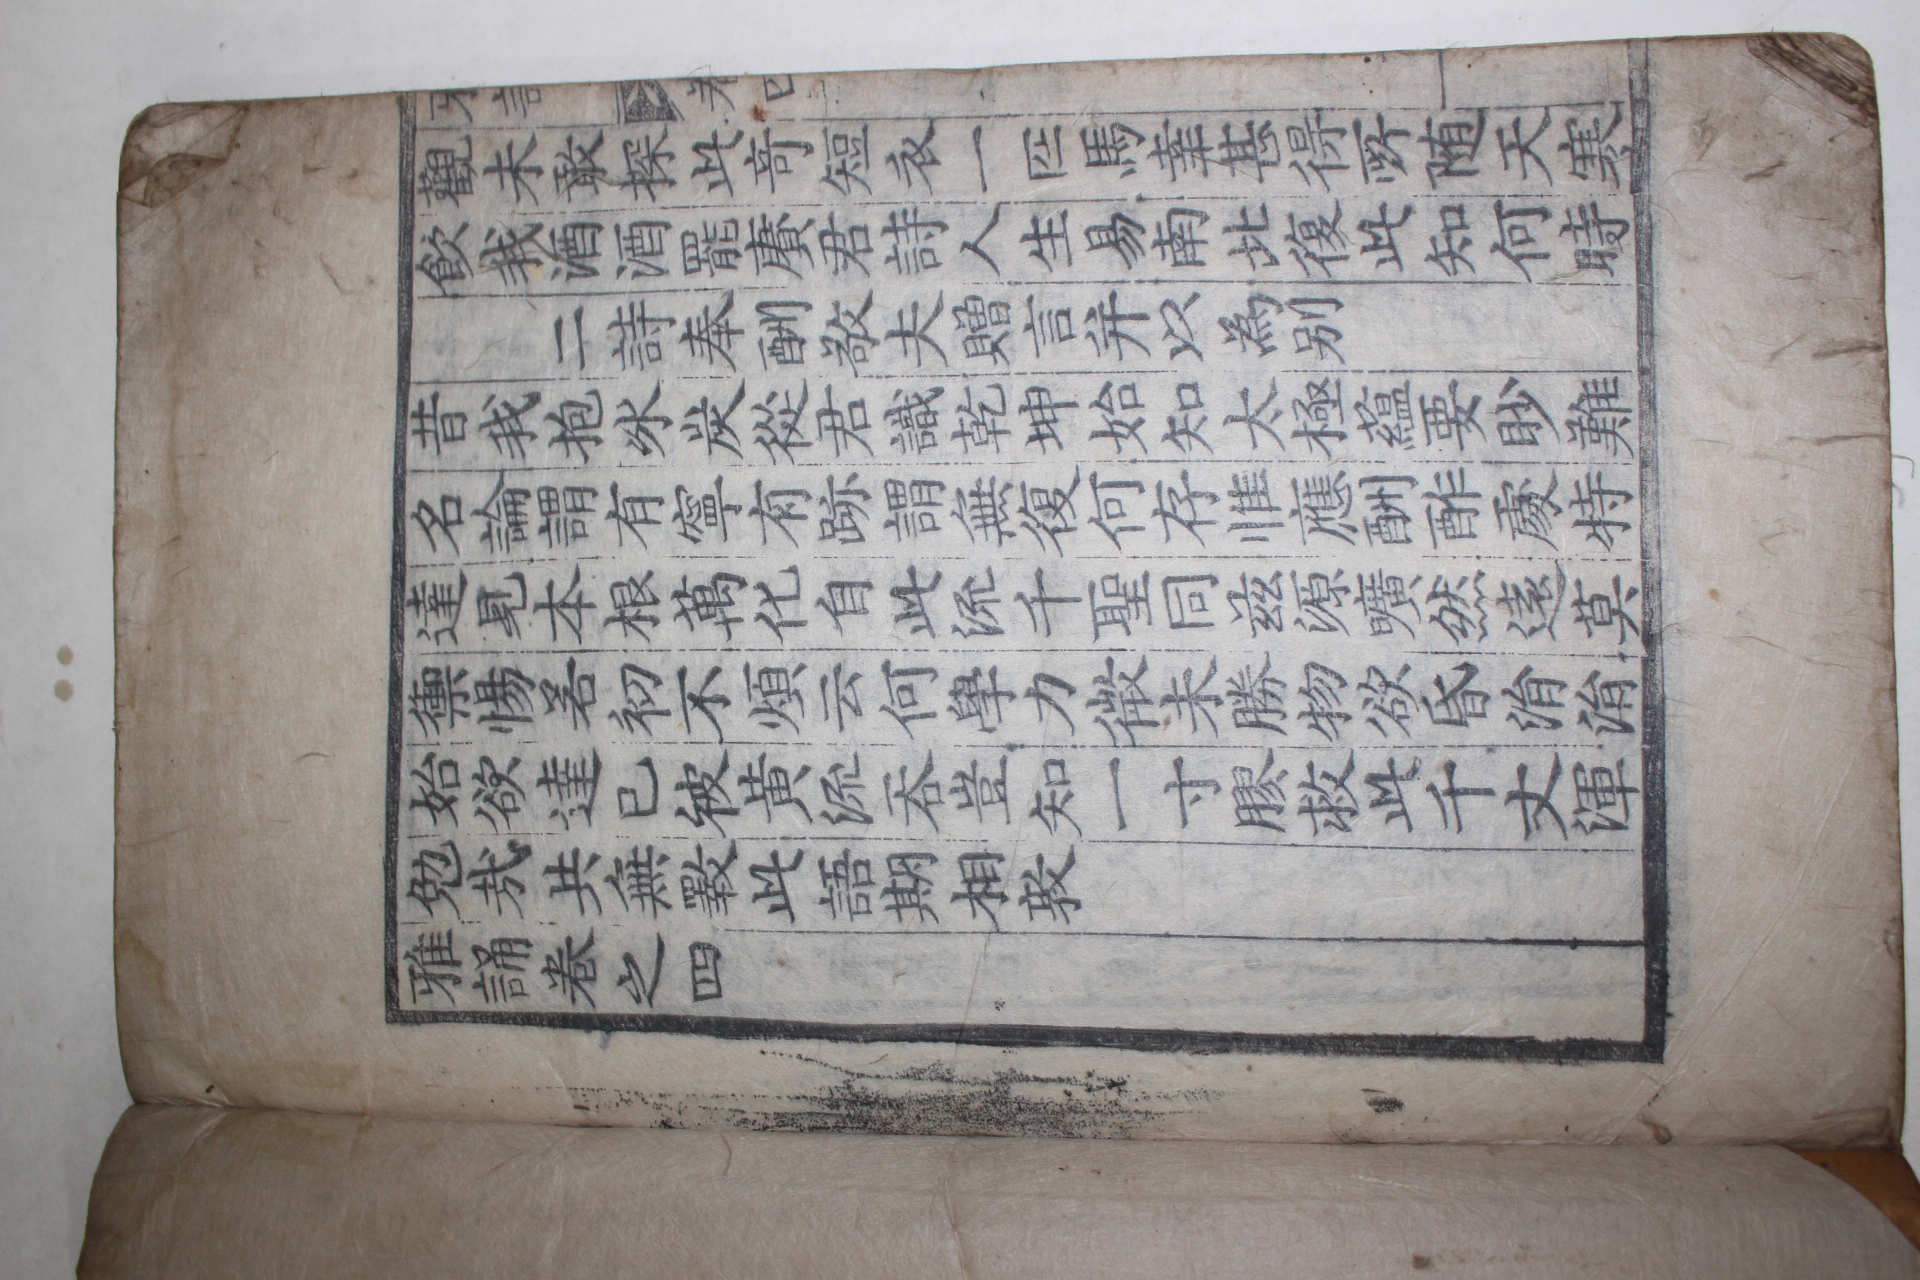 觀未敢探此奇短衣一匹馬幸甚得所随天寒
飮我酒酒罷賡君詩人生易南北復此知何時
二詩奉酬敬夫贈言并以為别
昔我抱氷炭從君識乾坤始知太極蘊要眇難
名論謂有寧有跡謂無復何存惟應酬酢處特
達見本根萬化自此流千聖同兹源曠然遠莫
禦惕若初不煩云何學力微未勝物欲昏涓涓
始欲達已被黄流吞豈知一寸膠救此千丈渾
勉哉共無斁此語期相敦
雅誦卷之四